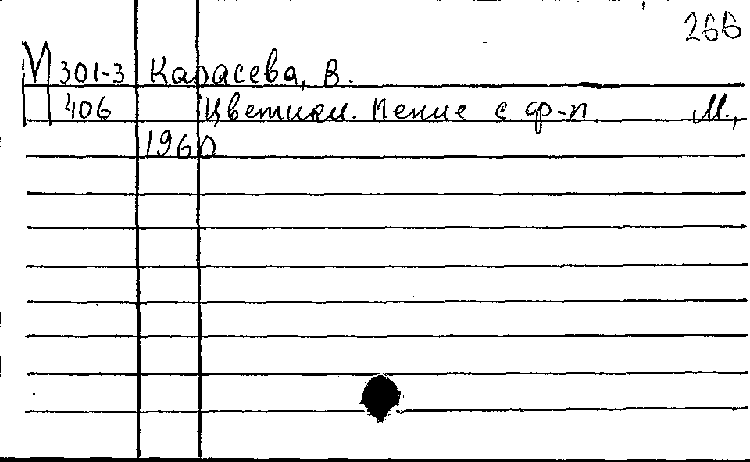 266
М 301-3 Карасева, В.
406 Цветики. Пение с ф-п. М.,
1960